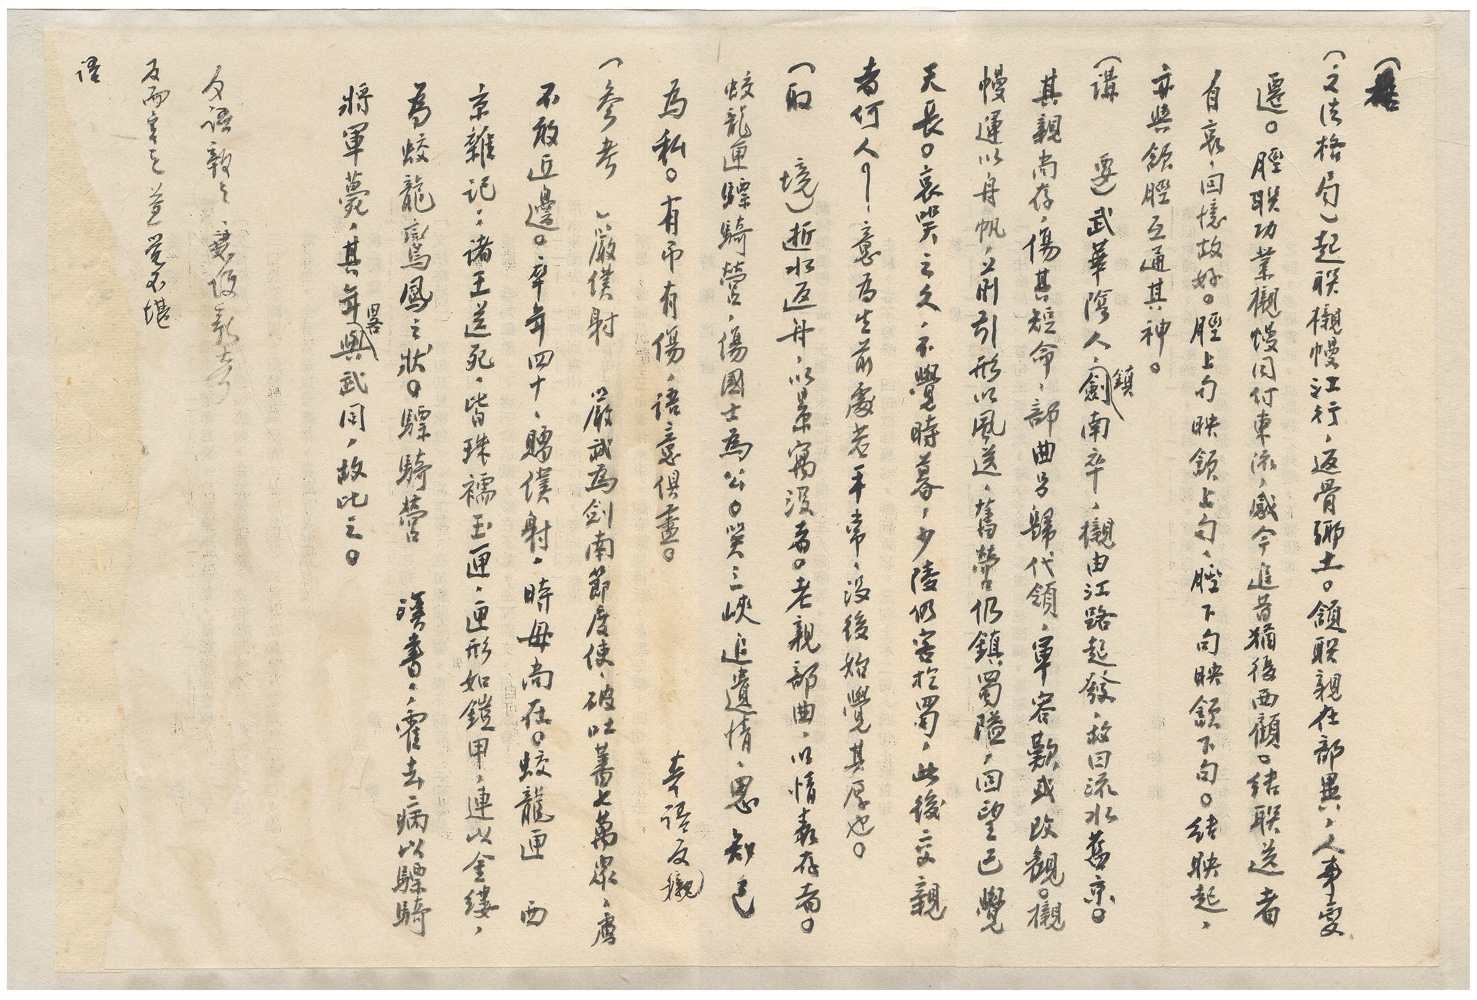 (文法格局)起联櫬幔江行，返骨鄉土。頷联親在部異，人事變
遷。脛联功業櫬幔同付東流，感今追昔猶後西顧。結联送者
自哀，回憶故好。脛上句映頷上句，脛下句映頷下句。結映起，
亦與頷脛互通其神。
(講 要)武華陰人，鎮劍南卒，櫬由江路起發，故曰流水舊京。
其親尚存，傷其短命，部曲另歸代領，軍容歎或改觀。櫬
幔運以舟帆，前引形以風送，舊營仍鎮蜀隘，回望已覺
天長。哀哭之久，不覺時暮，少陵仍客於蜀，此後交親
者何人，意為生前處若平常，沒後始覺其厚也。
(取 境)逝水返舟，以景寫沒者。老親部曲，以情義存者。
蛟龍匣驃騎營，傷國士為公。哭三峽追遺情，思知己
為私。有弔有傷，語意俱盡。
(參考 嚴僕射 嚴武為劍南節度使，破吐蕃七萬衆，虜
不敢近邊。卒年四十，贈僕射，時母尚在。蛟龍匣 西
京雜記：諸王送死，皆珠襦玉匣，匣形如鎧甲，連以金縷，
為蛟龍鸞鳳之狀。驃騎營 漢書，霍去病以驃騎
將軍薨，其年畧與武同，故比之。
語